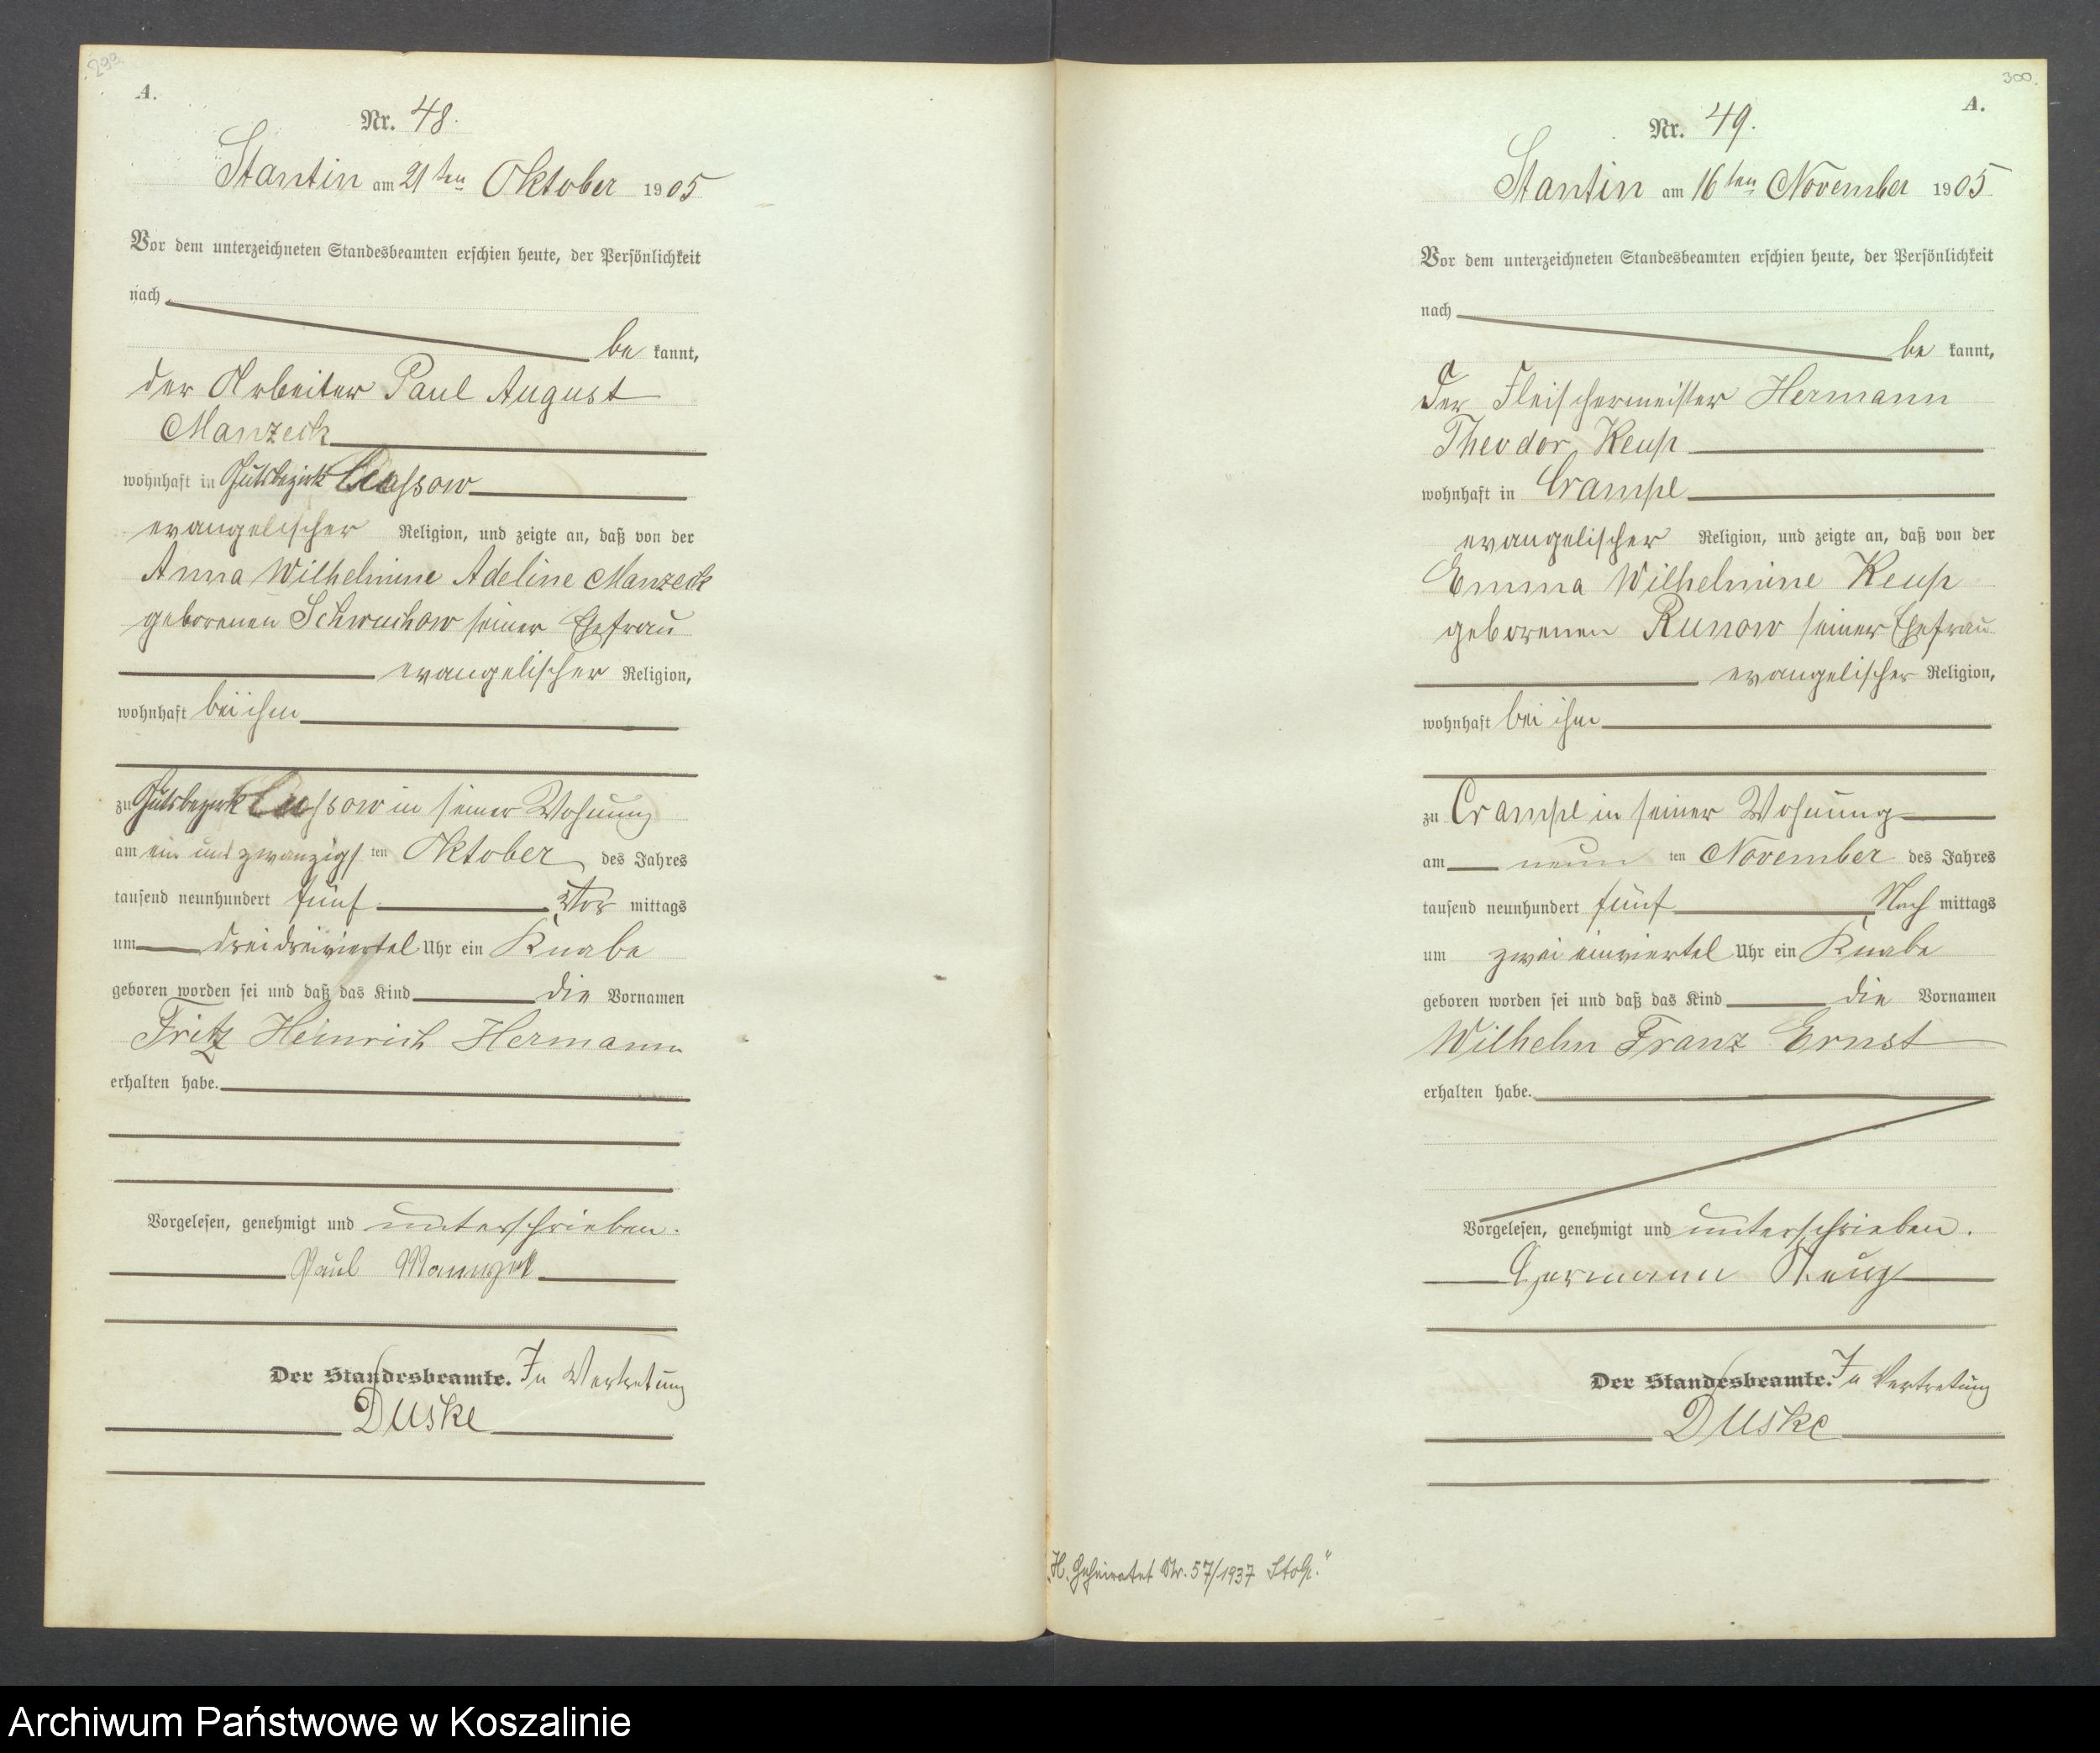 299
A.
Nr. 48.
Stantin am 21ten Oktober 1905
Vor dem unterzeichneten Standesbeamten erschien heute, der Persönlichkeit
nach
be kannt,
der Arbeiter Paul August
Manzeck
wohnhaft in Gutsbezirk
evangelischer Religion, und zeigte an, daß von der
Anna Wilhelmine Adeline Manzeck
geborenen Schwuchow seiner Ehefrau
evangelischer Religion,
wohnhaft bei ihm
zu Gutsbezirk in seiner Wohnung
am ein und zwanzigsten Oktober des Jahres
tausend neunhundert fünf Vor mittags
um drei dreiviertel Uhr ein Knabe
geboren worden sei und daß das Kind die Vornamen
Fritz Heinrich Hermann
erhalten habe.
Vorgelesen, genehmigt und unterschrieben.
Paul
Der Standesbeamte. In Vertretung
Duske
300.
A.
Nr. 49.
Stantin am 16ten November 1905
Vor dem unterzeichneten Standesbeamten erschien heute, der Persönlichkeit
nach
be kannt,
Der Fleischermeister Hermann
Theodor Keup
wohnhaft in Crampe
evangelischer Religion, und zeigte an, daß von der
Emma Wilhelmine Keup
geborenen Runow seiner Ehefrau
evangelischer Religion,
wohnhaft bei ihm
zu Crampe in seiner Wohnung
am neun ten November des Jahres
tausend neunhundert fünf Nach mittags
um zwei einviertel Uhr ein Knabe
geboren worden sei und daß das Kind die Vornamen
Wilhelm Franz Ernst
erhalten habe.
Vorgelesen, genehmigt und unterschrieben.
Hermann Keup
Der Standesbeamte. In Vertretung
Duske
„H. Geheiratet Nr. 57/1937 Stolp."
Archiwum Państwowe w Koszalinie